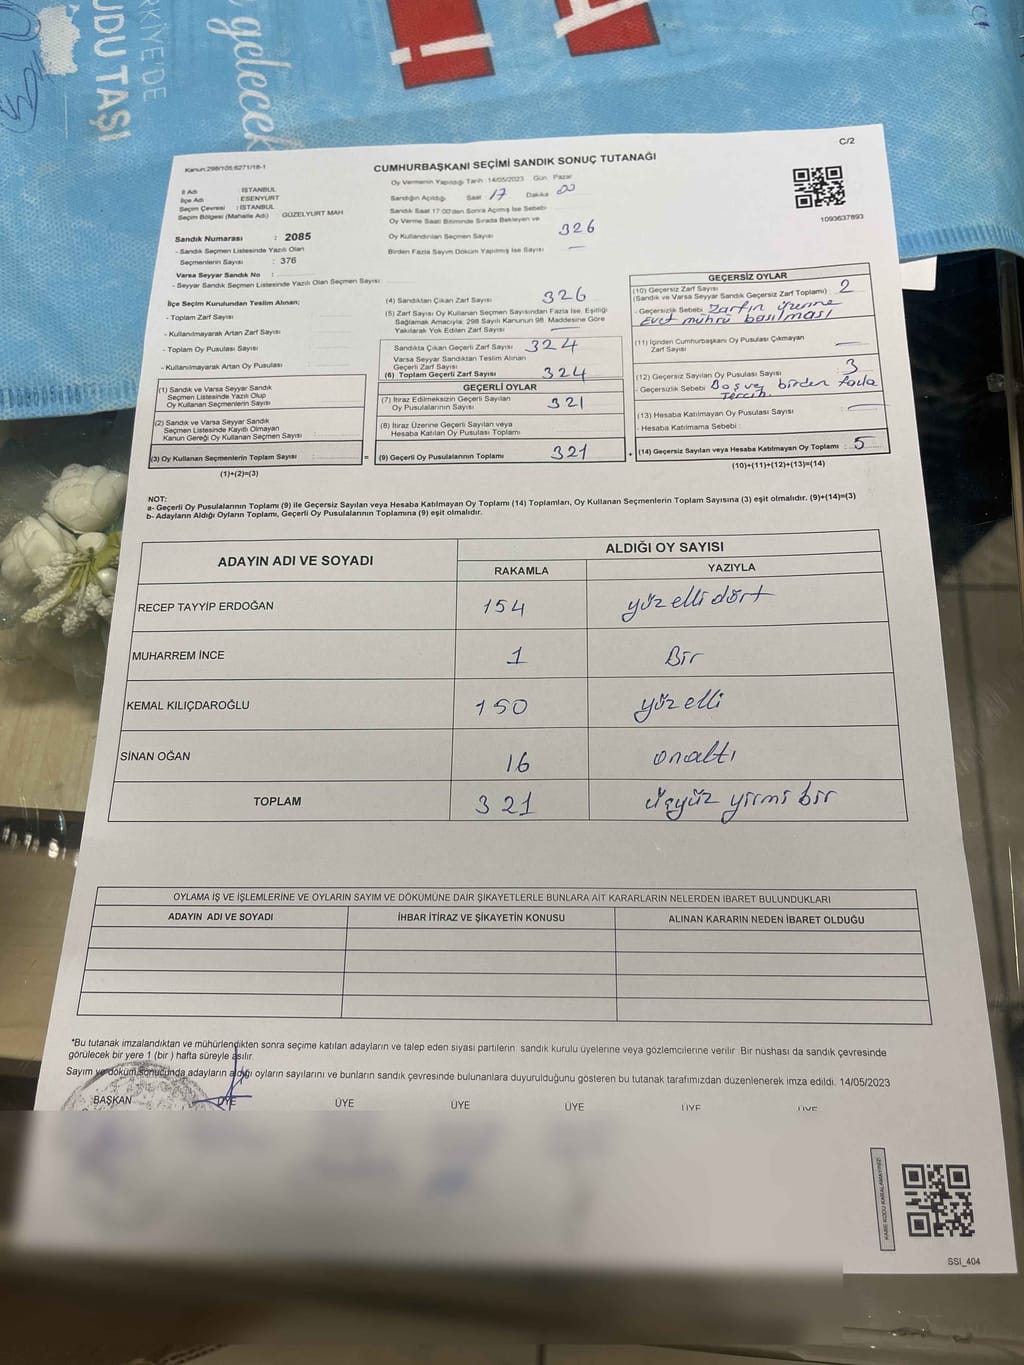 RKİYE'DE
UDU TAŞI
gelecek
C/2
Kanun:298/105;6271/18-1
CUMHURBAŞKANI SEÇİMİ SANDIK SONUÇ TUTANAĞI
İl Adı : İSTANBUL
İlçe Adı : ESENYURT
Seçim Çevresi : İSTANBUL
Seçim Bölgesi (Mahalle Adı) GÜZELYURT MAH
Oy Vermenin Yapıldığı Tarih :14/05/2023 Gün: Pazar
Sandığın Açıldığı Saat 17 Dakika 00
Sandık Saat 17:00'den Sonra Açılmış İse Sebebi
Oy Verme Saati Bitiminde Sırada Bekleyen ve
Oy Kullandırılan Seçmen Sayısı 326
Birden Fazla Sayım Döküm Yapılmış İse Sayısı —
1093637893
Sandık Numarası : 2085
- Sandık Seçmen Listesinde Yazılı Olan
Seçmenlerin Sayısı : 376
Varsa Seyyar Sandık No :
- Seyyar Sandık Seçmen Listesinde Yazılı Olan Seçmen Sayısı :
İlçe Seçim Kurulundan Teslim Alınan;
- Toplam Zarf Sayısı :
- Kullanılmayarak Artan Zarf Sayısı :
- Toplam Oy Pusulası Sayısı :
- Kullanılmayarak Artan Oy Pusulası :
(1) Sandık ve Varsa Seyyar Sandık
Seçmen Listesinde Yazılı Olup
Oy Kullanan Seçmenlerin Sayısı :
(2) Sandık ve Varsa Seyyar Sandık
Seçmen Listesinde Kayıtlı Olmayan
Kanun Gereği Oy Kullanan Seçmen Sayısı :
(3) Oy Kullanan Seçmenlerin Toplam Sayısı :
(1)+(2)=(3)
=
(4) Sandıktan Çıkan Zarf Sayısı 326
(5) Zarf Sayısı Oy Kullanan Seçmen Sayısından Fazla İse, Eşitliği
Sağlamak Amacıyla; 298 Sayılı Kanunun 98. Maddesine Göre
Yakılarak Yok Edilen Zarf Sayısı —
Sandıkta Çıkan Geçerli Zarf Sayısı 324
Varsa Seyyar Sandıktan Teslim Alınan
Geçerli Zarf Sayısı
(6) Toplam Geçerli Zarf Sayısı 324
GEÇERLİ OYLAR
(7) İtiraz Edilmeksizin Geçerli Sayılan
Oy Pusulalarının Sayısı 321
(8) İtiraz Üzerine Geçerli Sayılan veya
Hesaba Katılan Oy Pusulası Toplamı
(9) Geçerli Oy Pusulalarının Toplamı 321
+
GEÇERSİZ OYLAR
(10) Geçersiz Zarf Sayısı
(Sandık ve Varsa Seyyar Sandık Geçersiz Zarf Toplamı) : 2
- Geçersizlik Sebebi : Zarfın üzerine
Evet mührü basılması
(11) İçinden Cumhurbaşkanı Oy Pusulası Çıkmayan
Zarf Sayısı —
(12) Geçersiz Sayılan Oy Pusulası Sayısı : 3
- Geçersizlik Sebebi Boş ve birden fazla
Tercih.
(13) Hesaba Katılmayan Oy Pusulası Sayısı : —
- Hesaba Katılmama Sebebi :
(14) Geçersiz Sayılan veya Hesaba Katılmayan Oy Toplamı : 5
(10)+(11)+(12)+(13)=(14)
NOT:
a- Geçerli Oy Pusulalarının Toplamı (9) ile Geçersiz Sayılan veya Hesaba Katılmayan Oy Toplamı (14) Toplamları, Oy Kullanan Seçmenlerin Toplam Sayısına (3) eşit olmalıdır. (9)+(14)=(3)
b- Adayların Aldığı Oyların Toplamı, Geçerli Oy Pusulalarının Toplamına (9) eşit olmalıdır.
ADAYIN ADI VE SOYADI ALDIĞI OY SAYISI
RAKAMLA YAZIYLA
RECEP TAYYİP ERDOĞAN 154 yüz elli dört
MUHARREM İNCE 1 Bir
KEMAL KILIÇDAROĞLU 150 yüz elli
SİNAN OĞAN 16 onaltı
TOPLAM 321 üçyüz yirmi bir
OYLAMA İŞ VE İŞLEMLERİNE VE OYLARIN SAYIM VE DÖKÜMÜNE DAİR ŞİKAYETLERLE BUNLARA AİT KARARLARIN NELERDEN İBARET BULUNDUKLARI
ADAYIN ADI VE SOYADI İHBAR İTİRAZ VE ŞİKAYETİN KONUSU ALINAN KARARIN NEDEN İBARET OLDUĞU
*Bu tutanak imzalandıktan ve mühürlendikten sonra seçime katılan adayların ve talep eden siyasi partilerin sandık kurulu üyelerine veya gözlemcilerine verilir. Bir nüshası da sandık çevresinde
görülecek bir yere 1 (bir ) hafta süreyle asılır.
Sayım ve döküm sonucunda adayların aldığı oyların sayılarını ve bunların sandık çevresinde bulunanlara duyurulduğunu gösteren bu tutanak tarafımızdan düzenlenerek imza edildi. 14/05/2023
BAŞKAN ÜYE ÜYE ÜYE ÜYE ÜYE ÜYE
KARE KODU KARALAMAYINIZ!
SSI_404